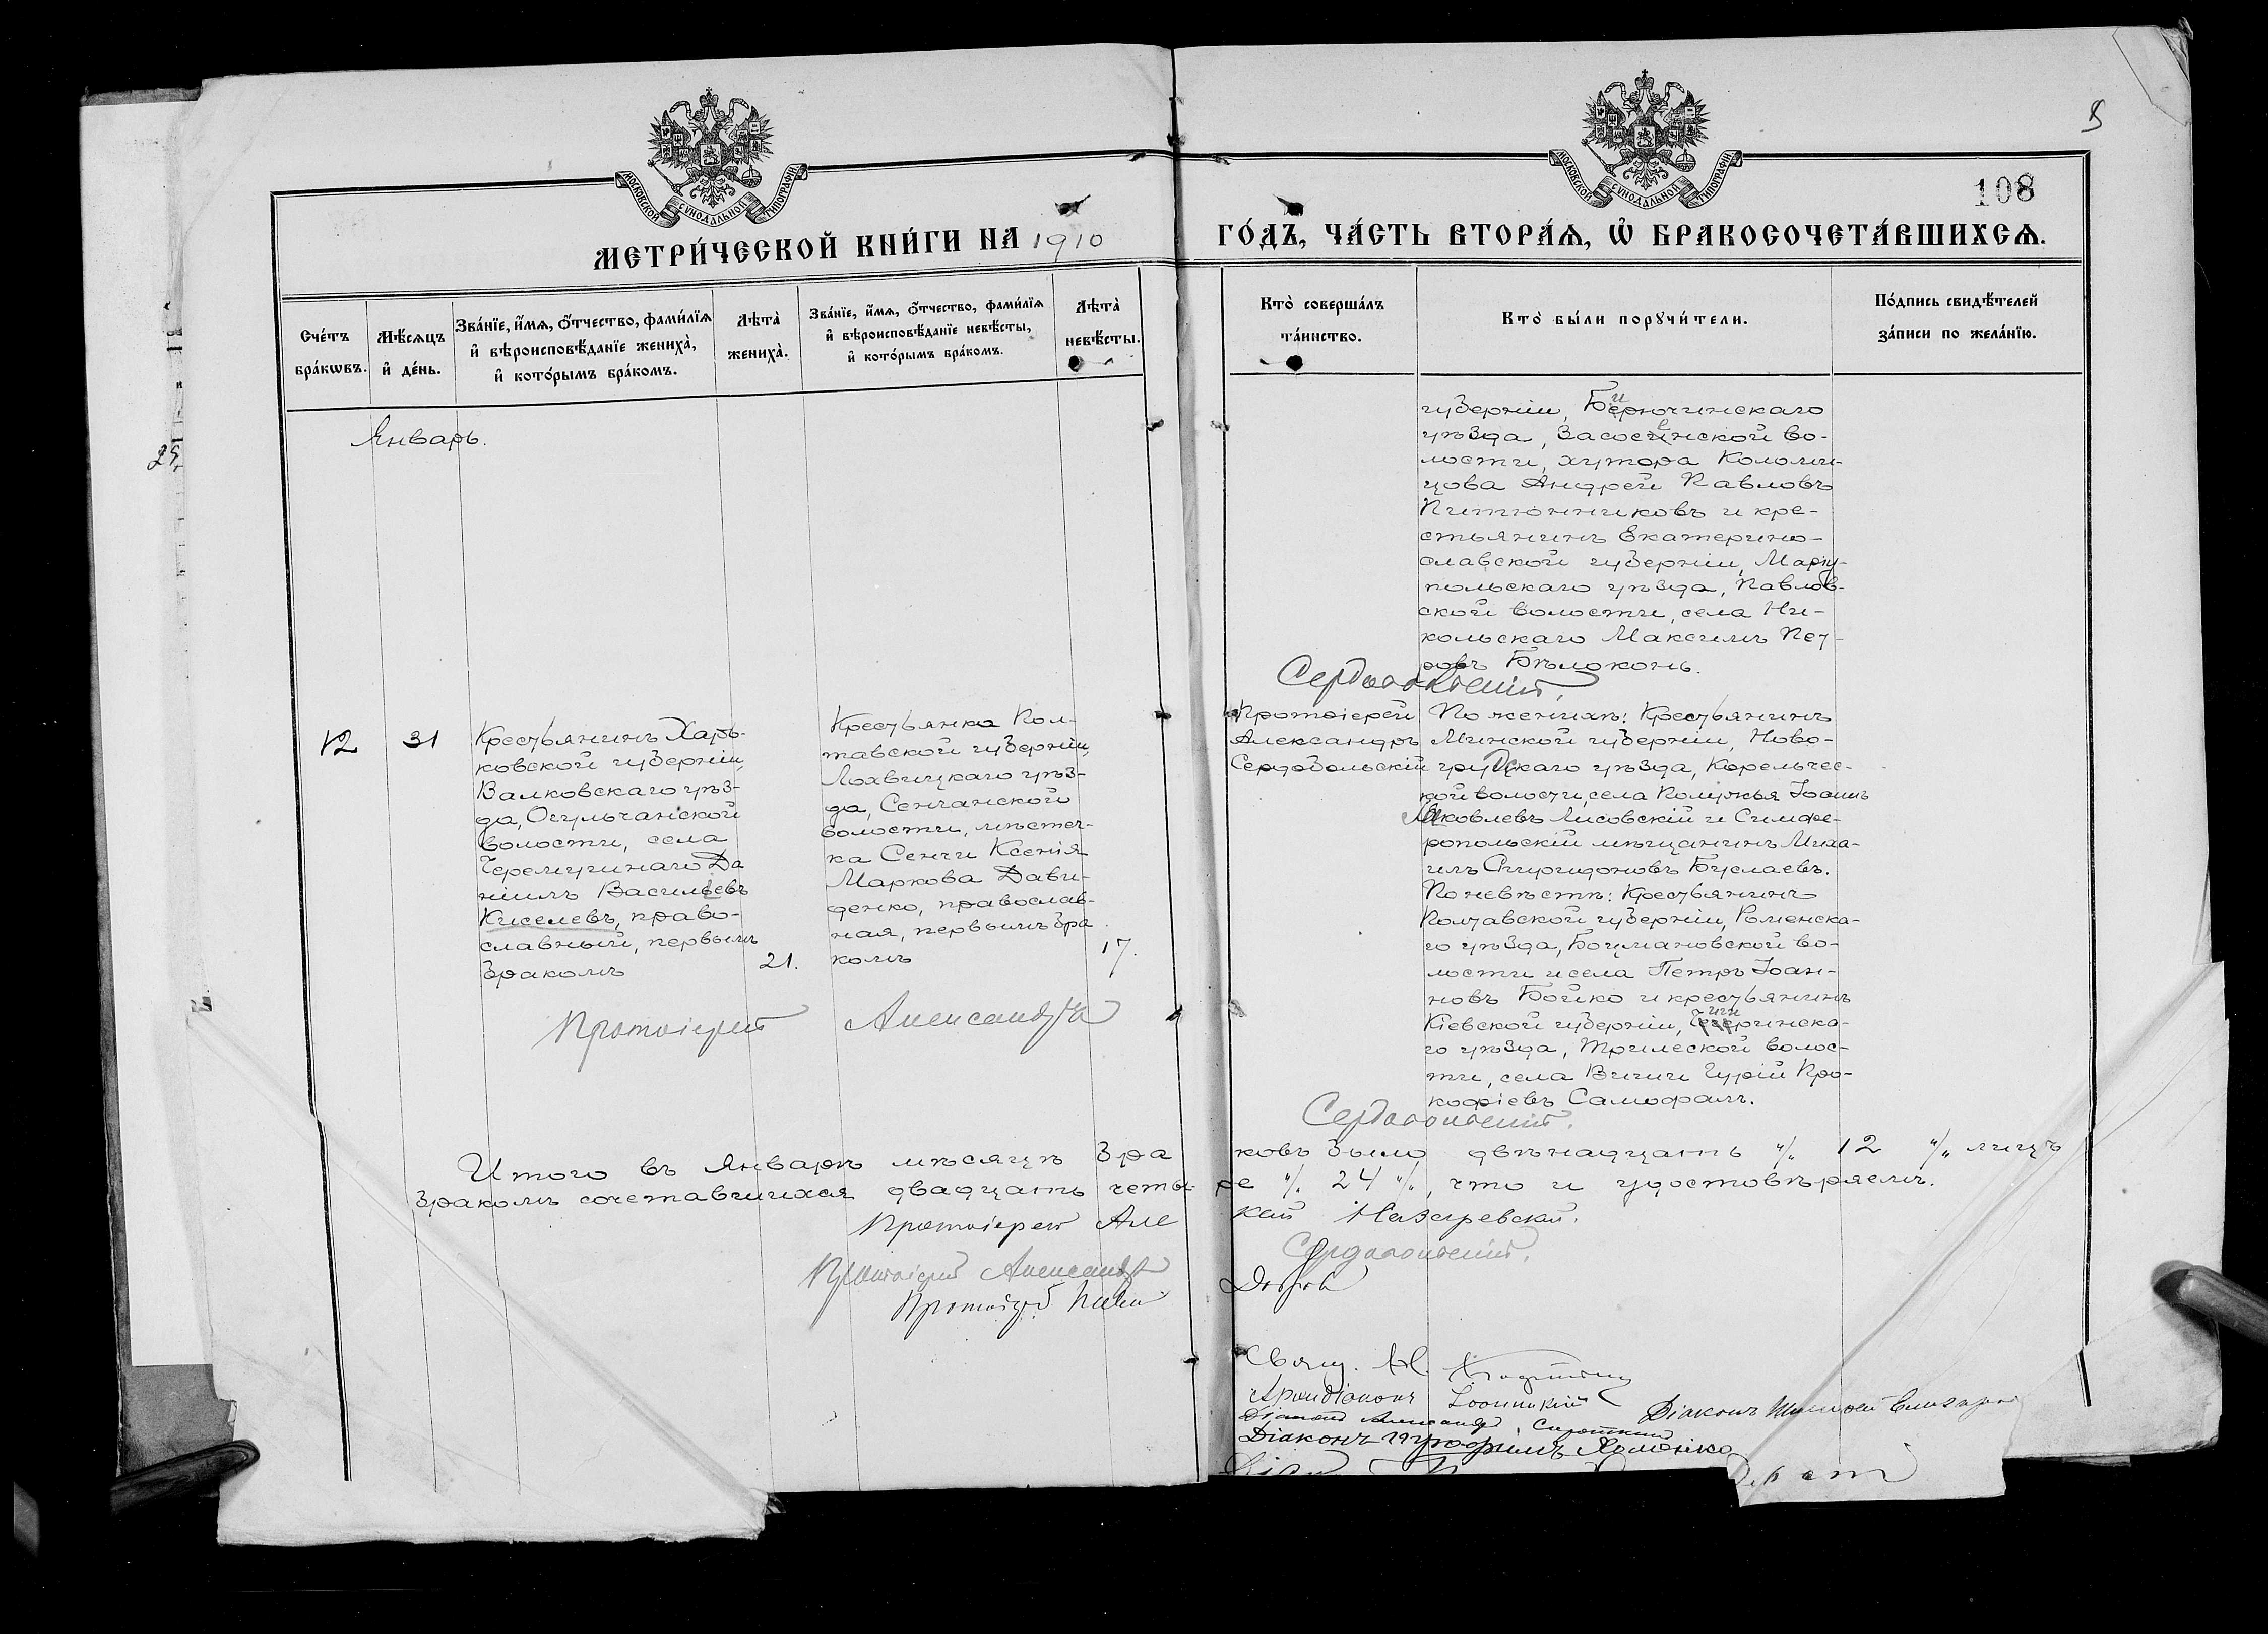 108
МЕТРИ́ЧЕСКОЙ КНИ́ГИ НА 1910
ГО́ДЪ, ЧА́СТЬ ВТОРА́Ѧ, Ѽ БРАКОСОЧЕТА́ВШИХСѦ.
МОСКОВСКОЙ СУНОДАЛЬНОЙ ТИПОГРАФІИ
МОСКОВСКОЙ СУНОДАЛЬНОЙ ТИПОГРАФІИ
Сче́тъ
бра́кѡвъ.
Мѣ́сѧцъ
и҆ де́нь.
Зва́нїе, и҆́мѧ, ѻ҆́тчество, фами́лїѧ
и҆ вѣроисповѣ́данїе жениха̀,
и҆ кото́рымъ бра́комъ.
Лѣта̀
жениха̀.
Зва́нїе, и҆́мѧ, ѻ҆́тчество, фами́лїѧ
и҆ вѣроисповѣ́данїе невѣ́сты,
и҆ кото́рымъ бра́комъ.
Лѣта̀
невѣ́сты.
Кто̀ соверша́лъ
та́инство.
Кто̀ бы́ли порꙋчи́тели.
По́дпись свидѣ́телей
за́писи по жела́нїю.
25
Январь.
губерніи, Бирючинскаго
уѣзда, Засосенской во-
лости, хутора Коломи-
цова Андрей Павловъ
Питюнниковъ и кре-
стьянинъ Екатерино-
славской губерніи, Маріу-
польскаго уѣзда, Павлов-
ской волости, села Ни-
кольскаго Максимъ Пет-
ровъ Бѣлоконь.
Сердобольскій.
12
31
Крестьянинъ Харь-
ковской губерніи,
Валковскаго уѣз-
да, Огульчанской
волости, села
Черемушнаго Да
ніилъ Васильевъ
Киселевъ, право-
славный, первымъ
бракомъ
21.
Крестьянка Пол-
тавской губерніи,
Лохвицкаго уѣз-
да, Сенчанской
волости, мѣстеч-
ка Сенчи Ксенія
Маркова Дави-
денко, православ-
ная, первымъ бра
комъ
17.
Протоіерей
Александръ
Сердобольскій
По женихѣ: Крестьянинъ
Минской губерніи, Ново-
грудскаго уѣзда, Корельчес-
кой волости, села Полужья Іоаннъ
Яковлевъ Лисовскій и Симфе-
ропольскій мѣщанинъ Миха-
илъ Спиридоновъ Буслаевъ.
По невѣстѣ: Крестьянинъ
Полтавской губерніи, Роменска-
го уѣзда, Боцмановской во-
лости и села Петръ Іоан-
новъ Бойко и крестьянинъ
Кіевской губерніи, Чигиринска-
го уѣзда, Трилеской волос-
ти, села Гурій Про-
кофіевъ Самофалъ.
Протоіерей Александръ
Сердобольскій.
Итого въ Январѣ мѣсяцѣ бра
ковъ было двѣнадцать "/. 12 "/. лицъ
бракомъ сочетавшихся двадцать четы-
ре "/. 24 "/., что и удостовѣряемъ.
Протоіерей Але
ксій Назаревскій.
Протоіерей Александръ
Сердобольскій.
Протоіерей
Свящ.
Діаконъ
Діаконъ Александръ Сироткинъ
Діаконъ Хоменко